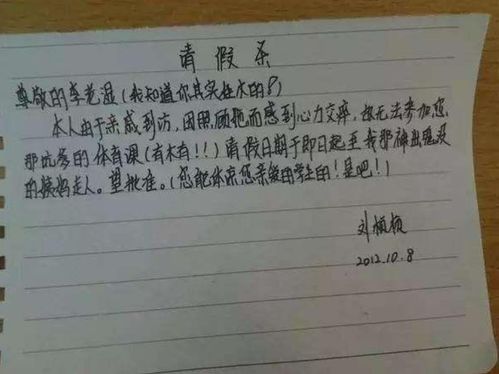 请假条
尊敬的李老湿(我知道你其实姓水的!)
本人由于亲戚到访,因照顾她而感到心力交瘁,故无法参加您
那坑爹的体育课(有木有!!)请假日期于即日起至我那神出鬼没
的姨妈走人。望批准。(您能体谅您亲爱的学生的!是吧!)
刘
2012.10.8